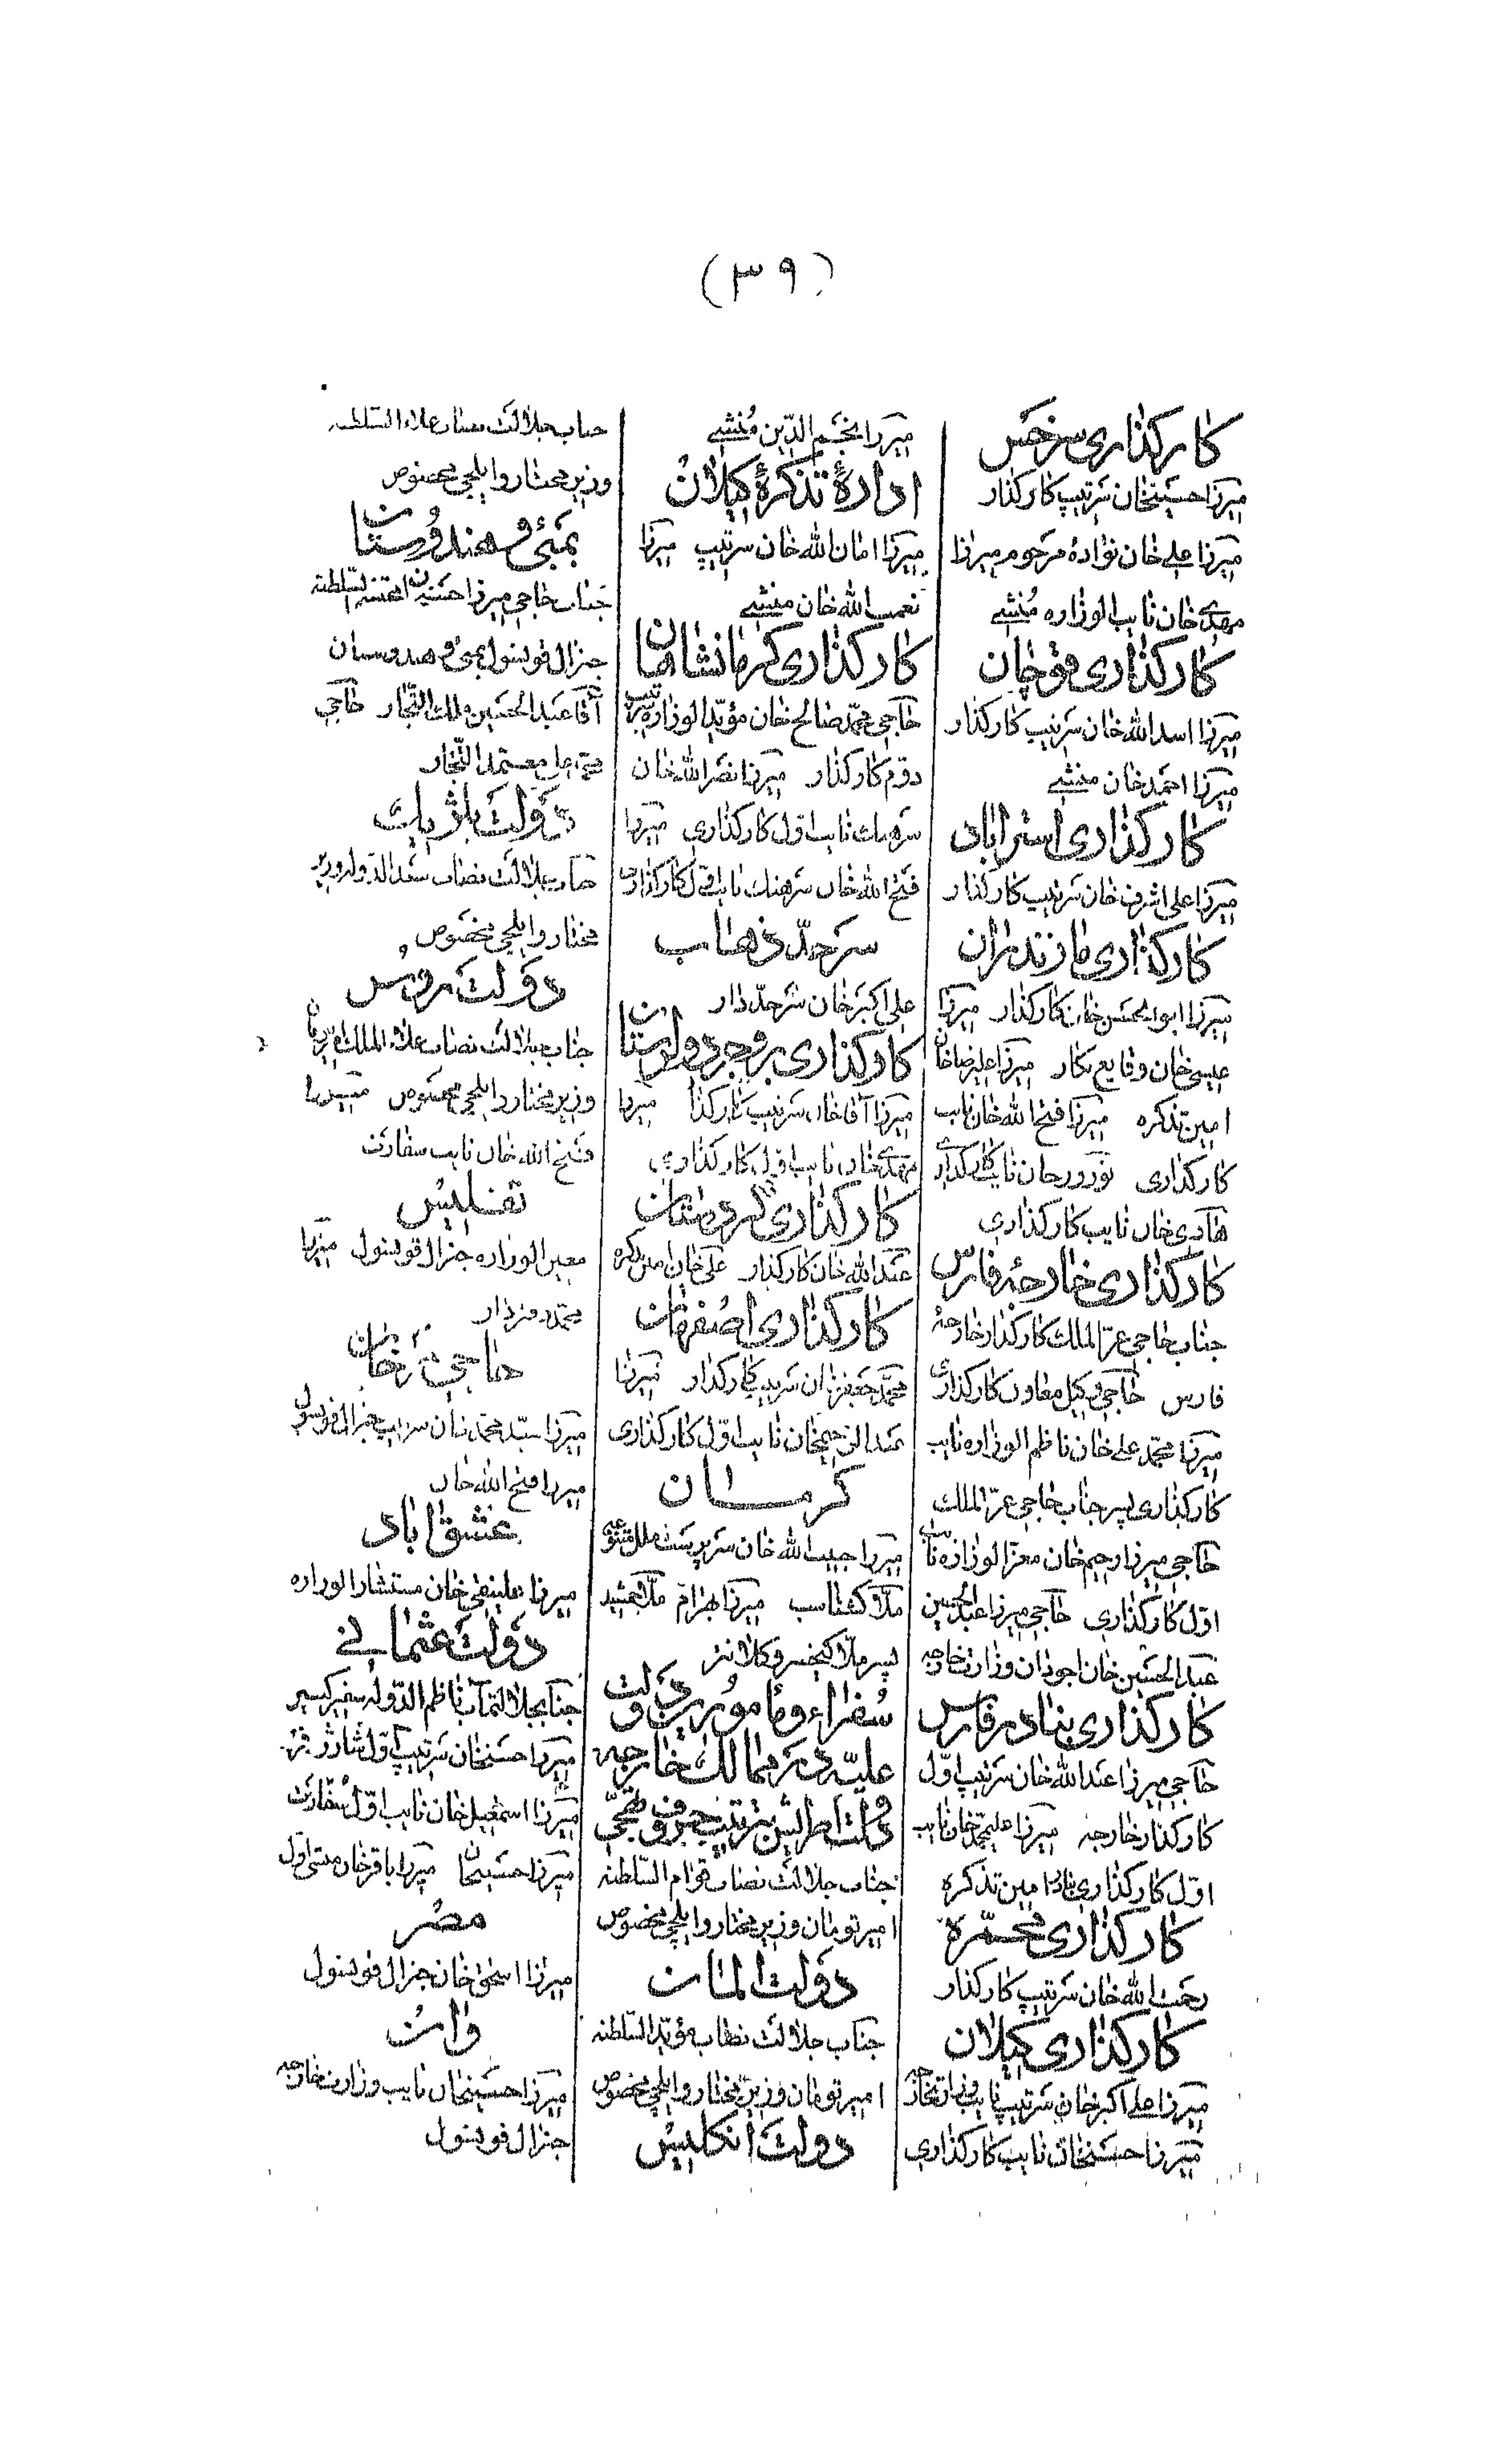 (٣٩)
کارکذاری سرخس
میرزا حسینخان سرتیپ کارکذار
میرزا علی خان نواده مرحوم میرزا
مهدی خان نایب الوزاره منشی
کارکذاری قوچان
میرزا اسدالله خان سرتیپ کارکذار
میرزا احمد خان منشی
کارکذاری استراباد
میرزا علی اشرف خان سرتیپ کارکذار
کارکذاری مازندران
میرزا ابوالحسن خان کارکذار میرزا
عیسی خان وقایع نکار میرزا علیرضا خان
امین تذکره میرزا فتح الله خان نایب
کارکذاری نوروز خان نایب کارکذاری
هادی خان نایب کارکذاری
کارکذاری خارجهٔ فارس
جناب حاجی عزّ الملک کارکذار خارجهٔ
فارس حاجی وکیل معاون کارکذاری
میرزا محمد علی خان ناظم الوزاره نایب
کارکذاری پسر جناب حاجی عزّ الملک
حاجی میرزا رحیم خان معزّ الوزاره نایب
اوّل کارکذاری حاجی میرزا عبدالحسین
عبدالحسین خان اجودان وزارت خارجه
کارکذاری بنادر فارس
حاجی میرزا عبدالله خان سرتیپ اوّل
کارکذار خارجه میرزا علیمحمد خان نایب
اوّل کارکذاری بنادر امین تذکره
کارکذاری محمّره
رحمت الله خان سرتیپ کارکذار
کارکذاری کیلان
میرزا علی اکبر خان سرتیپ نایب وزارتخارجه
میرزا حسنخان نایب کارکذاری
میرزا نجم الدّین منشی
ادارهٔ تذکرهٔ کیلان
میرزا امان الله خان سرتیپ میرزا
نعمت الله خان منشی
کارکذاری کرمانشاهان
حاجی محمّد صالح خان مؤیّد الوزاره سرتیپ
دوّم کارکذار میرزا نصر الله خان
سرهنک نایب اوّل کارکذاری میرزا
فتح الله خان سرهنک نایب اوّل کارکذاری
سرحدّ ذهاب
علی اکبر خان سرحدّ دار
کارکذاری بروجرد و لرستان
میرزا آقا خان سرتیپ کارکذار میرزا
مهدی خان نایب اوّل کارکذاری
کارکذاری کردستان
عبدالله خان کارکذار علی خان امین تذکره
کارکذاری اصفهان
محمّد جعفر خان سرتیپ کارکذار میرزا
عبدالرّحیمخان نایب اوّل کارکذاری
کرمان
میرزا حبیب الله خان سرپرست ملل متنوّعه
ملّا کشتاسب میرزا بهرام ملّا جمشید
پسر ملّا کیخسرو کلانتر
سفراء و مأمورین دولت
علیّه در ممالک خارجه
دولت اطریش بترتیب حروف تهجّی
جناب جلالت نصاب قوام السّلطنه
امیر تومان وزیر مختار و ایلچی مخصوص
دولت المان
جناب جلالت نصاب مؤیّد السّلطنه
امیر تومان وزیر مختار و ایلچی مخصوص
دولت انکلیس
جناب جلالت نصاب علاء السّلطنه
وزیر مختار و ایلچی مخصوص
بمبئی و هندوستان
جناب حاجی میرزا حسینخان السّلطنه
جنرال قونسول بمبئی و هندوستان
آقا عبدالحسین ملک التّجّار حاجی
معتمد التّجّار
دولت بلژیک
جناب جلالت نصاب سعد الدّوله وزیر
مختار و ایلچی مخصوص
دولت روس
جناب جلالت نصاب علاء الملک
وزیر مختار و ایلچی مخصوص میرزا
فتح الله خان نایب سفارت
تفلیس
معین الوزاره جنرال قونسول میرزا
محمّد دفتردار
حاجی ترخان
میرزا سیّد محمّد خان سرتیپ جنرال قونسول
میرزا فتح الله خان
عشق اباد
میرزا علینقی خان مستشار الوزاره
دولت عثمانی
جناب جلالتمآب ناظم الدّوله سفیر کبیر
میرزا حسنخان سرتیپ اوّل شارژ دفر
میرزا اسمعیل خان نایب اوّل سفارت
میرزا حسینخان میرزا باقر خان منشی اوّل
مصر
میرزا اسحق خان جنرال قونسول
وان
میرزا حسینخان نایب وزارتخارجه
جنرال قونسول